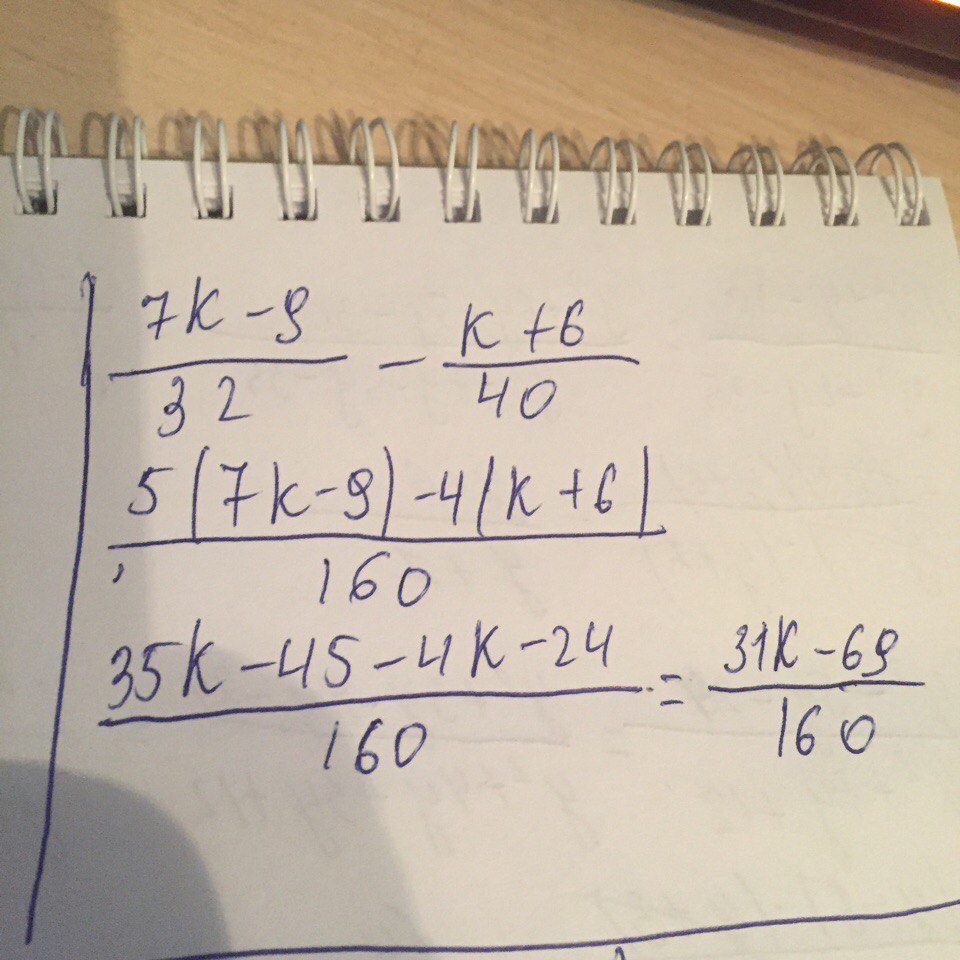 7k-9/32 - k+6/40
5(7k-9)-4(k+6)/160
35k-45-4k-24/160 = 31k-69/160